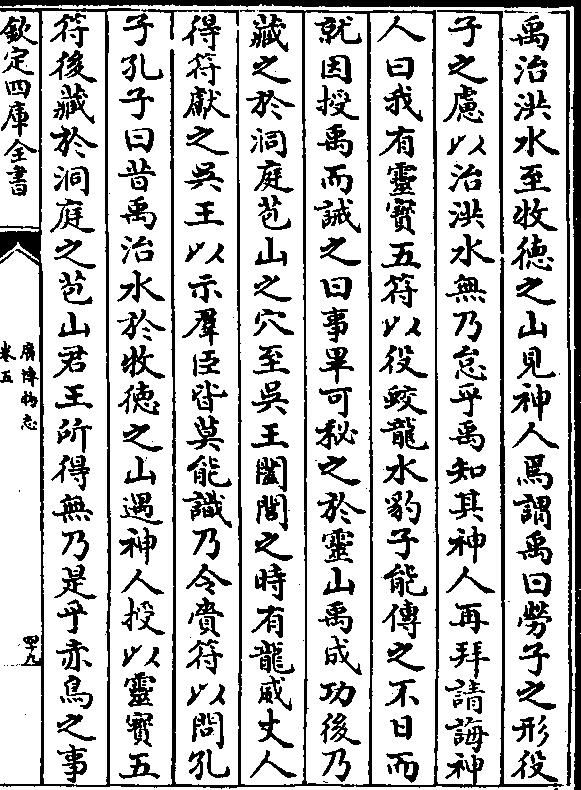 禹治洪水至牧德之山見神人焉謂禹曰勞子之形役
子之慮以治洪水無乃怠乎禹知其神人再拜請誨神
人曰我有靈寳五符以役蛟龍水豹子能傳之不日而
就因授禹而誡之曰事畢可秘之於靈山禹成功後乃
藏之於洞庭苞山之穴至吳王闔閭之時有龍威丈人
得符獻之吳王以示羣臣皆莫能識乃令賫符以問孔
子孔子曰昔禹治水於牧德之山遇神人授以靈寳五
符後藏於洞庭之苞山君王所得無乃是乎赤烏之事
欽定四庫全書
廣博物志
卷五
四十九